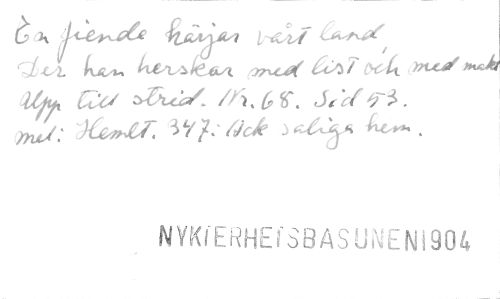 En fiende härjar vårt land,
Der han herskar med list och med makt
Upp till strid. Nr. 68. Sid 53.
mel: Hemlt. 347: Ack saliga hem.
NYKTERHETSBASUNEN1904